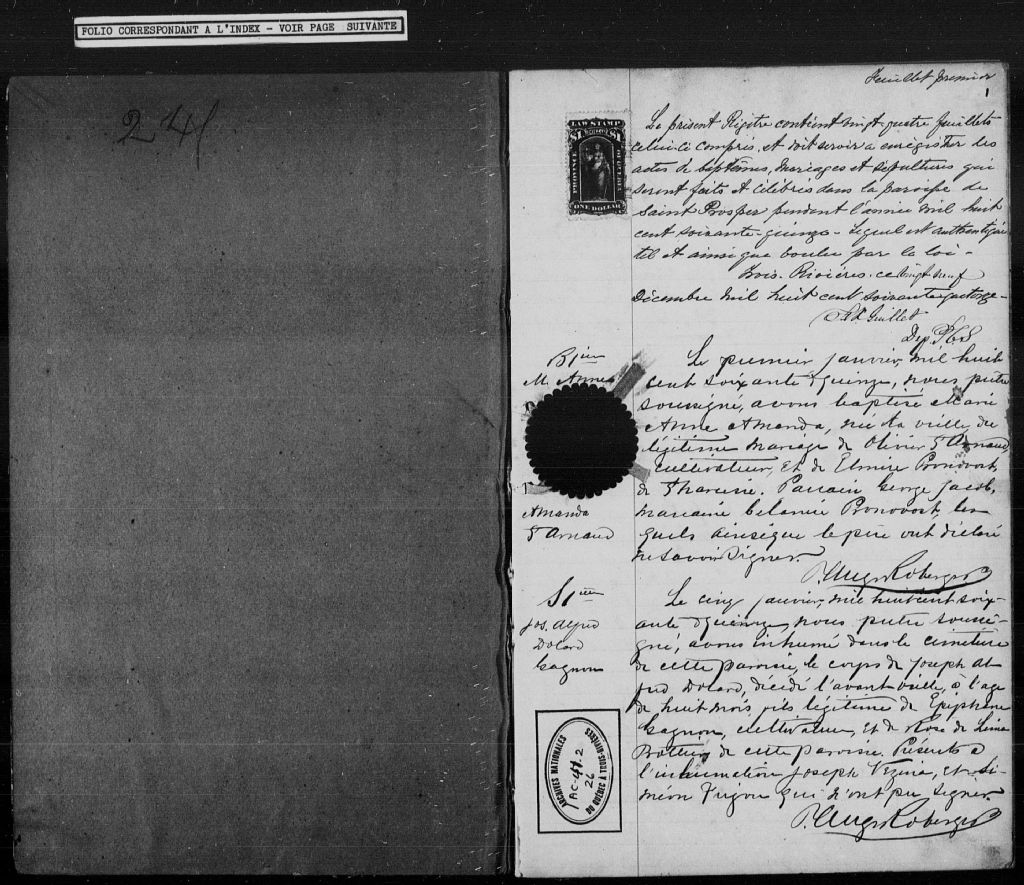 FOLIO CORRESPONDANT A L'INDEX - VOIR PAGE SUIVANTE
Feuillet premier
1
LAW STAMP
$1
PROVINCE
OF QUEBEC
ONE DOLLAR
Le présent Régitre contient vingt quatre feuillets
celui-ci compris, et doit servir a enrégistrer les
actes de baptêmes, mariages et sépultures qui
seront faits et célébrés dans la paroisse de
Saint Prosper pendant l'année mil huit
cent soixante-quinze - lequel est authentiqué
tel et ainsi que voulue par la loi -
Trois-Rivières. ce vingt neuf
Décembre mil huit cent soixante-quatorze -
Guillet
Dep P.C.S
B1ière
M. Anne
Amanda
St Arnaud
Le premier janvier, mil huit
cent soixante & quinze, nous prêtre
soussigné, avons baptisé Marie
Anne Amanda, née la veille du
légitime mariage de Olivier St Arnaud,
cultivateur, et de Elmire Pronovost,
de St Narcisse. Parrain George Jacob,
marraine Pronovost, les
quels ainsi que le père ont déclaré
ne savoir signer.
S1ière
Jos. Alfred
Dolard
Gagnon
Le cinq janvier, mil huit cent soix-
ante & quinze, nous prêtre soussi-
gné, avons inhumé dans le cimetière
de cette paroisse, le corps de Joseph Al
fred Dolard, décédé l'avant veille, à l'age
de huit mois, fils légitime de Epiphane
Gagnon, cultivateur, et de Rose de Lima
de cette paroisse. Présents à
l'inhumation Joseph Vézina, et Si-
méon Frigon qui n'ont pu signer.
ARCHIVES NATIONALES
DU QUÉBEC À TROIS-RIVIÈRES
26